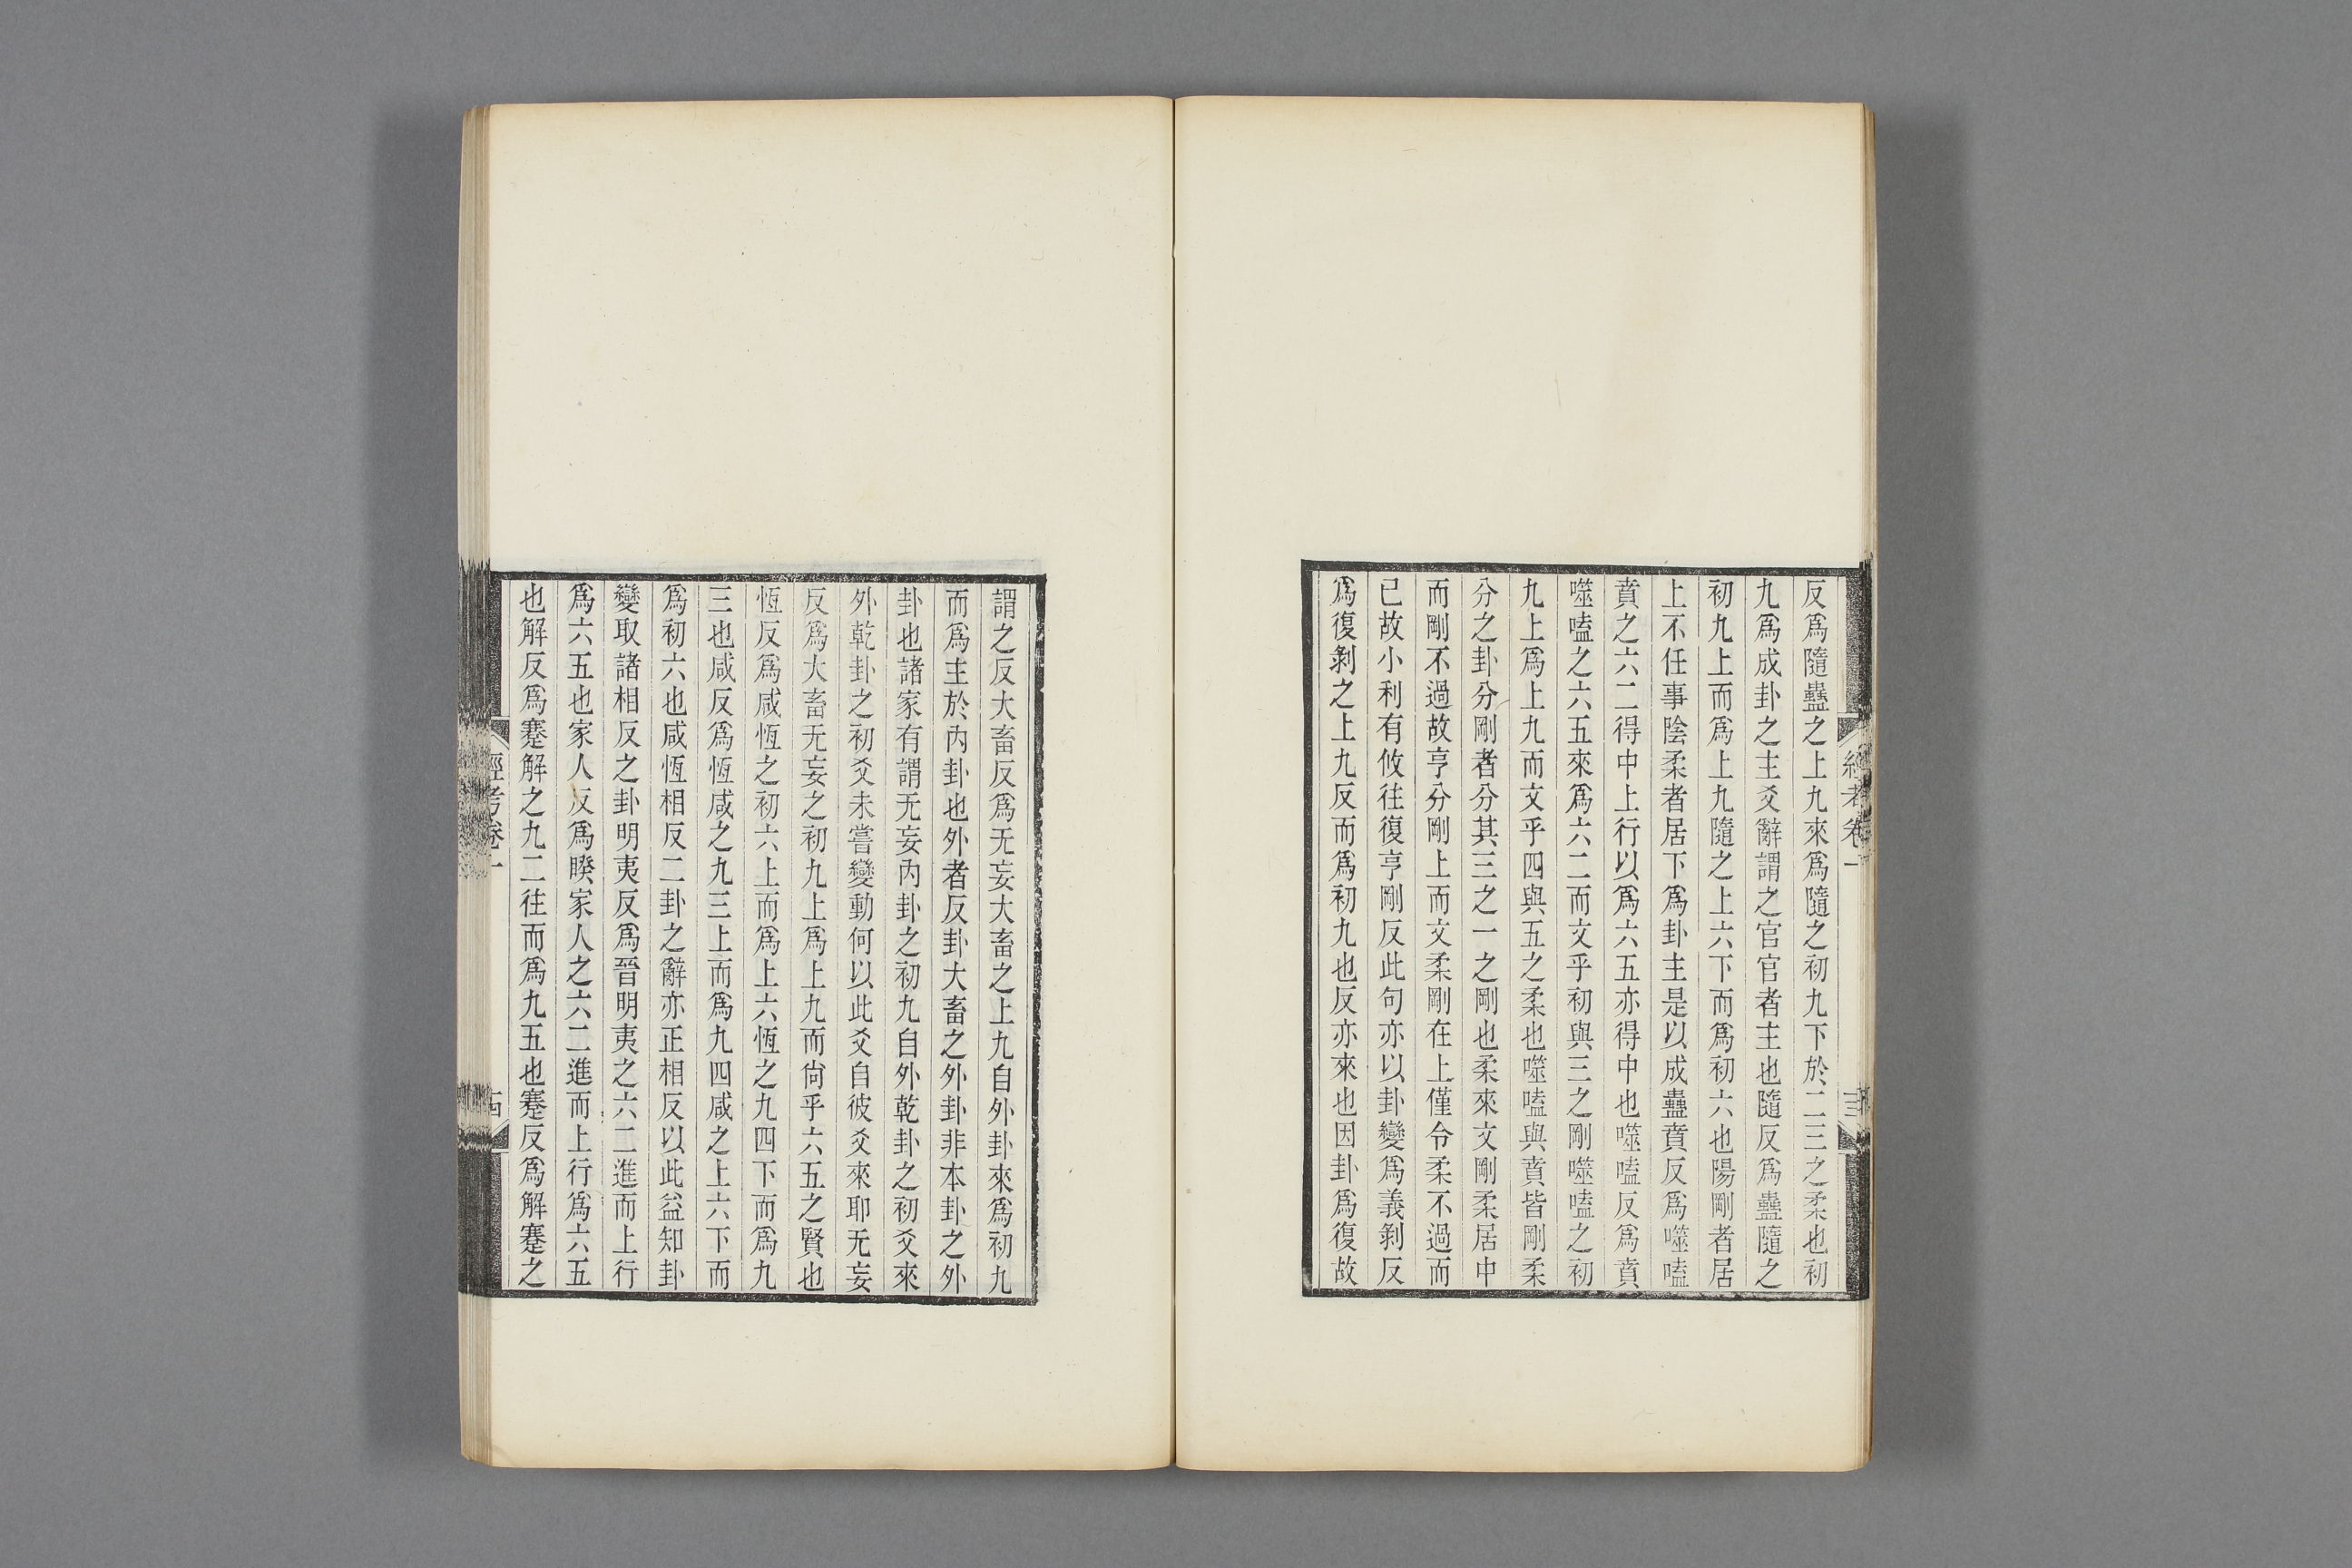 反爲隨蠱之上九來爲隨之初九下於二三之柔也初
九爲成卦之主爻辭謂之官官者主也隨反爲蠱隨之
初九上而爲上九隨之上六下而爲初六也陽剛者居
上不任事陰柔者居下爲卦主是以成蠱賁反爲噬嗑
賁之六二得中上行以爲六五亦得中也噬嗑反爲賁
噬嗑之六五來爲六二而文乎初與三之剛噬嗑之初
九上爲上九而文乎四與五之柔也噬嗑與賁皆剛柔
分之卦分剛者分其三之一之剛也柔來文剛柔居中
而剛不過故亨分剛上而文柔剛在上僅令柔不過而
已故小利有攸往復亨剛反此句亦以卦變爲義剝反
爲復剝之上九反而爲初九也反亦來也因卦爲復故
經考卷一
謂之反大畜反爲无妄大畜之上九自外卦來爲初九
而爲主於內卦也外者反卦大畜之外卦非本卦之外
卦也諸家有謂无妄內卦之初九自外乾卦之初爻來
外乾卦之初爻未嘗變動何以此爻自彼爻來耶无妄
反爲大畜无妄之初九上爲上九而尙乎六五之賢也
恆反爲咸恆之初六上而爲上六恆之九四下而爲九
三也咸反爲恆咸之九三上而爲九四咸之上六下而
爲初六也咸恆相反二卦之辭亦正相反以此益知卦
變取諸相反之卦明夷反爲晉明夷之六二進而上行
爲六五也家人反爲睽家人之六二進而上行爲六五
也解反爲蹇解之九二往而爲九五也蹇反爲解蹇之
經考卷一